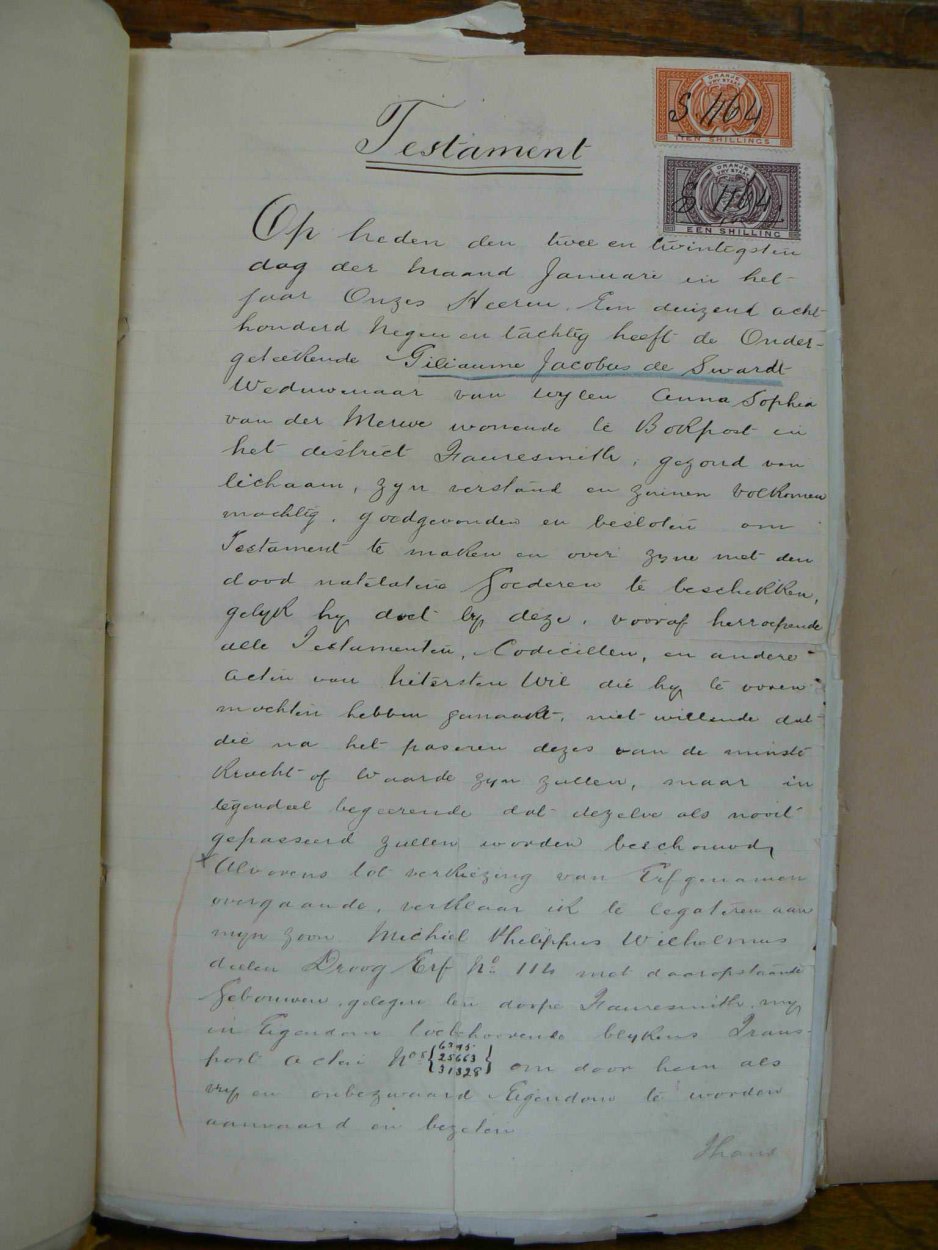 ORANJE
VRY STAAT
S 1164
TIEN SHILLINGS
Testament
ORANJE
VRY STAAT
S. 1164.
EEN SHILLING
Op heden den twee en twintigsten
dag der maand Januari in het
jaar Onzes Heeren. Een duizend acht-
honderd Negen en tachtig heeft de Onder-
geteekende Giliaume Jacobus de Swardt
Weduwenaar van wylen Anna Sophia
van der Merwe wonende te Bokpost in
het district Fauresmith, gezond van
lichaam, zyn verstand en zinnen volkomen
machtig, goedgevonden en besloten om
Testament te maken en over zyne met den
dood natelatene Goederen te beschikken,
gelyk hy doet by deze, vooraf herroepende
alle Testamenten, Codicillen, en andere
acten van uitersten Wil die hy te voren
mochten hebben gemaakt, niet willende dat
die na het paseren dezes van de minste
Kracht of Waarde zyn zullen, maar in
tegendeel begeerende dat dezelve als nooit
gepasseerd zullen worden beschouwd,
x Alvorens tot verkiezing van Erfgenamen
overgaande, verklaar ik te legateren aan
myn zoon Michiel Philippus Wilhelmus
deelen Droog Erf No. 114 met daaropstaande
Gebouwen, gelegen ten dorpe Fauresmith, my
in Eigendom toebehoorende blykens Trans-
port Acten Nos { 6295 25663 31328 } om door hem als
vry en onbezwaard Eigendom te worden
aanvaard en bezeten
Thans